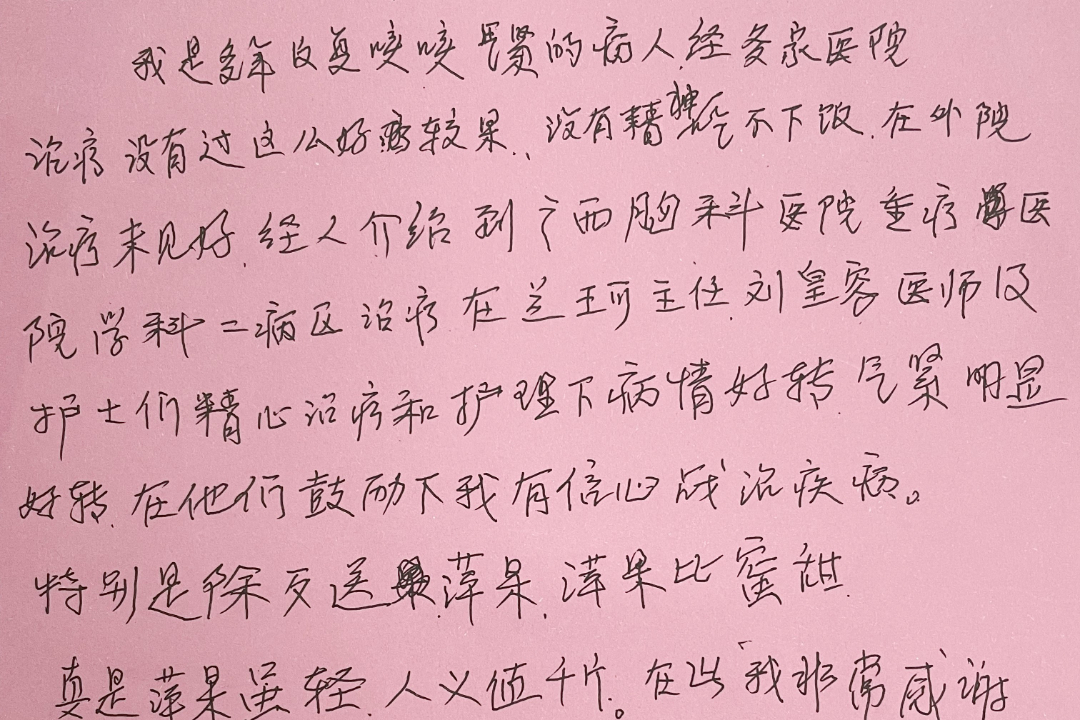 我是多年反复咳咳 的病人.经多家医院
治疗没有过这么好疗较果.没有精神吃不下饭.在外院
治疗未见好.经人介绍到广西胸科医院重疗医
院学科二病区治疗在兰珂主任刘皇容医师及
护士们精心治疗和护理下病情好转气紧明显
好转.在他们鼓励下我有信心战治疾病。
特别是除夕送萍果.萍果比蜜甜.
真是萍果虽轻.人义值千斤。在此我非常感谢